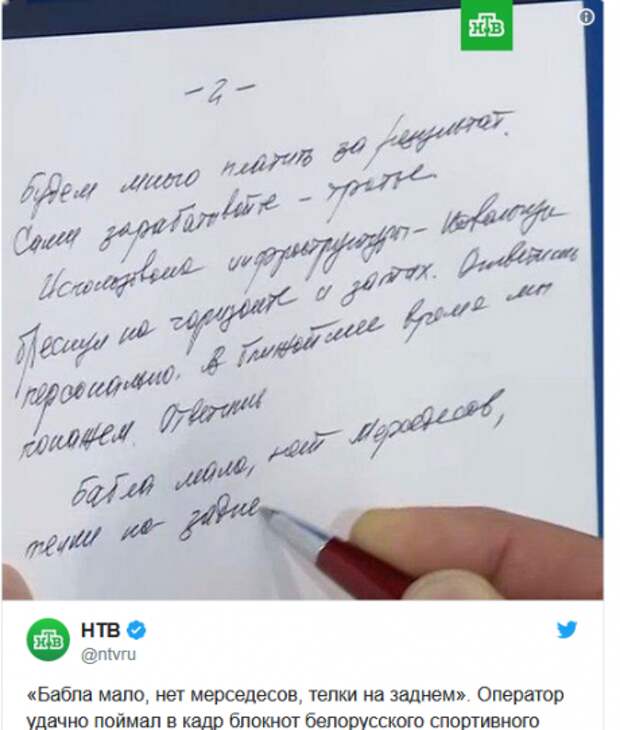 НТВ
- 2 -
Будем много платить за результат.
Сами зарабатывайте - третье.
инфраструктуры -
блеснул на горизонте и затих. Ответить
персонально. В ближайшее время мы
покажем. Ответить
Бабла мало, нет Мерседесов,
телки на задне
НТВ
НТВ
@ntvru
«Бабла мало, нет мерседесов, телки на заднем». Оператор
удачно поймал в кадр блокнот белорусского спортивного